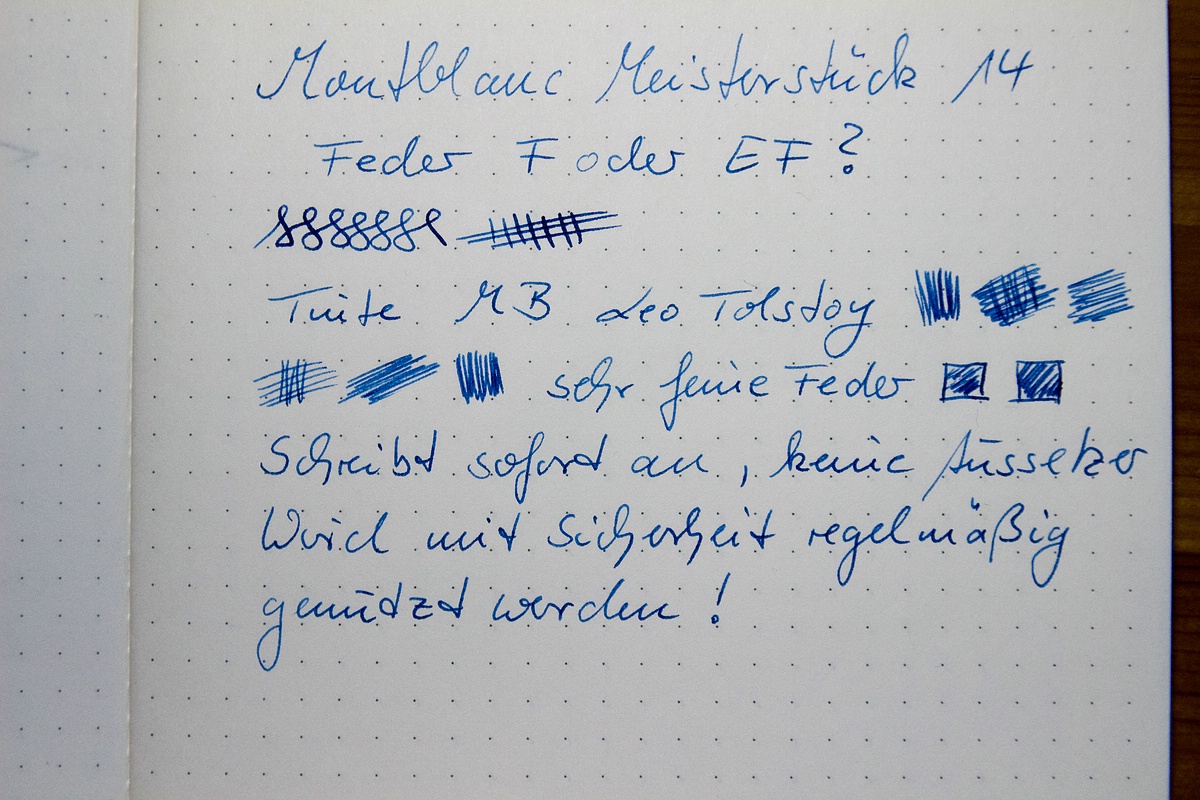 Montblanc Meisterstück 14
Feder F oder EF?
Tinte MB Leo Tolstoy
sehr feine Feder
Schreibt sofort an, keine Aussetzer
Wird mit Sicherheit regelmäßig
genützt werden!